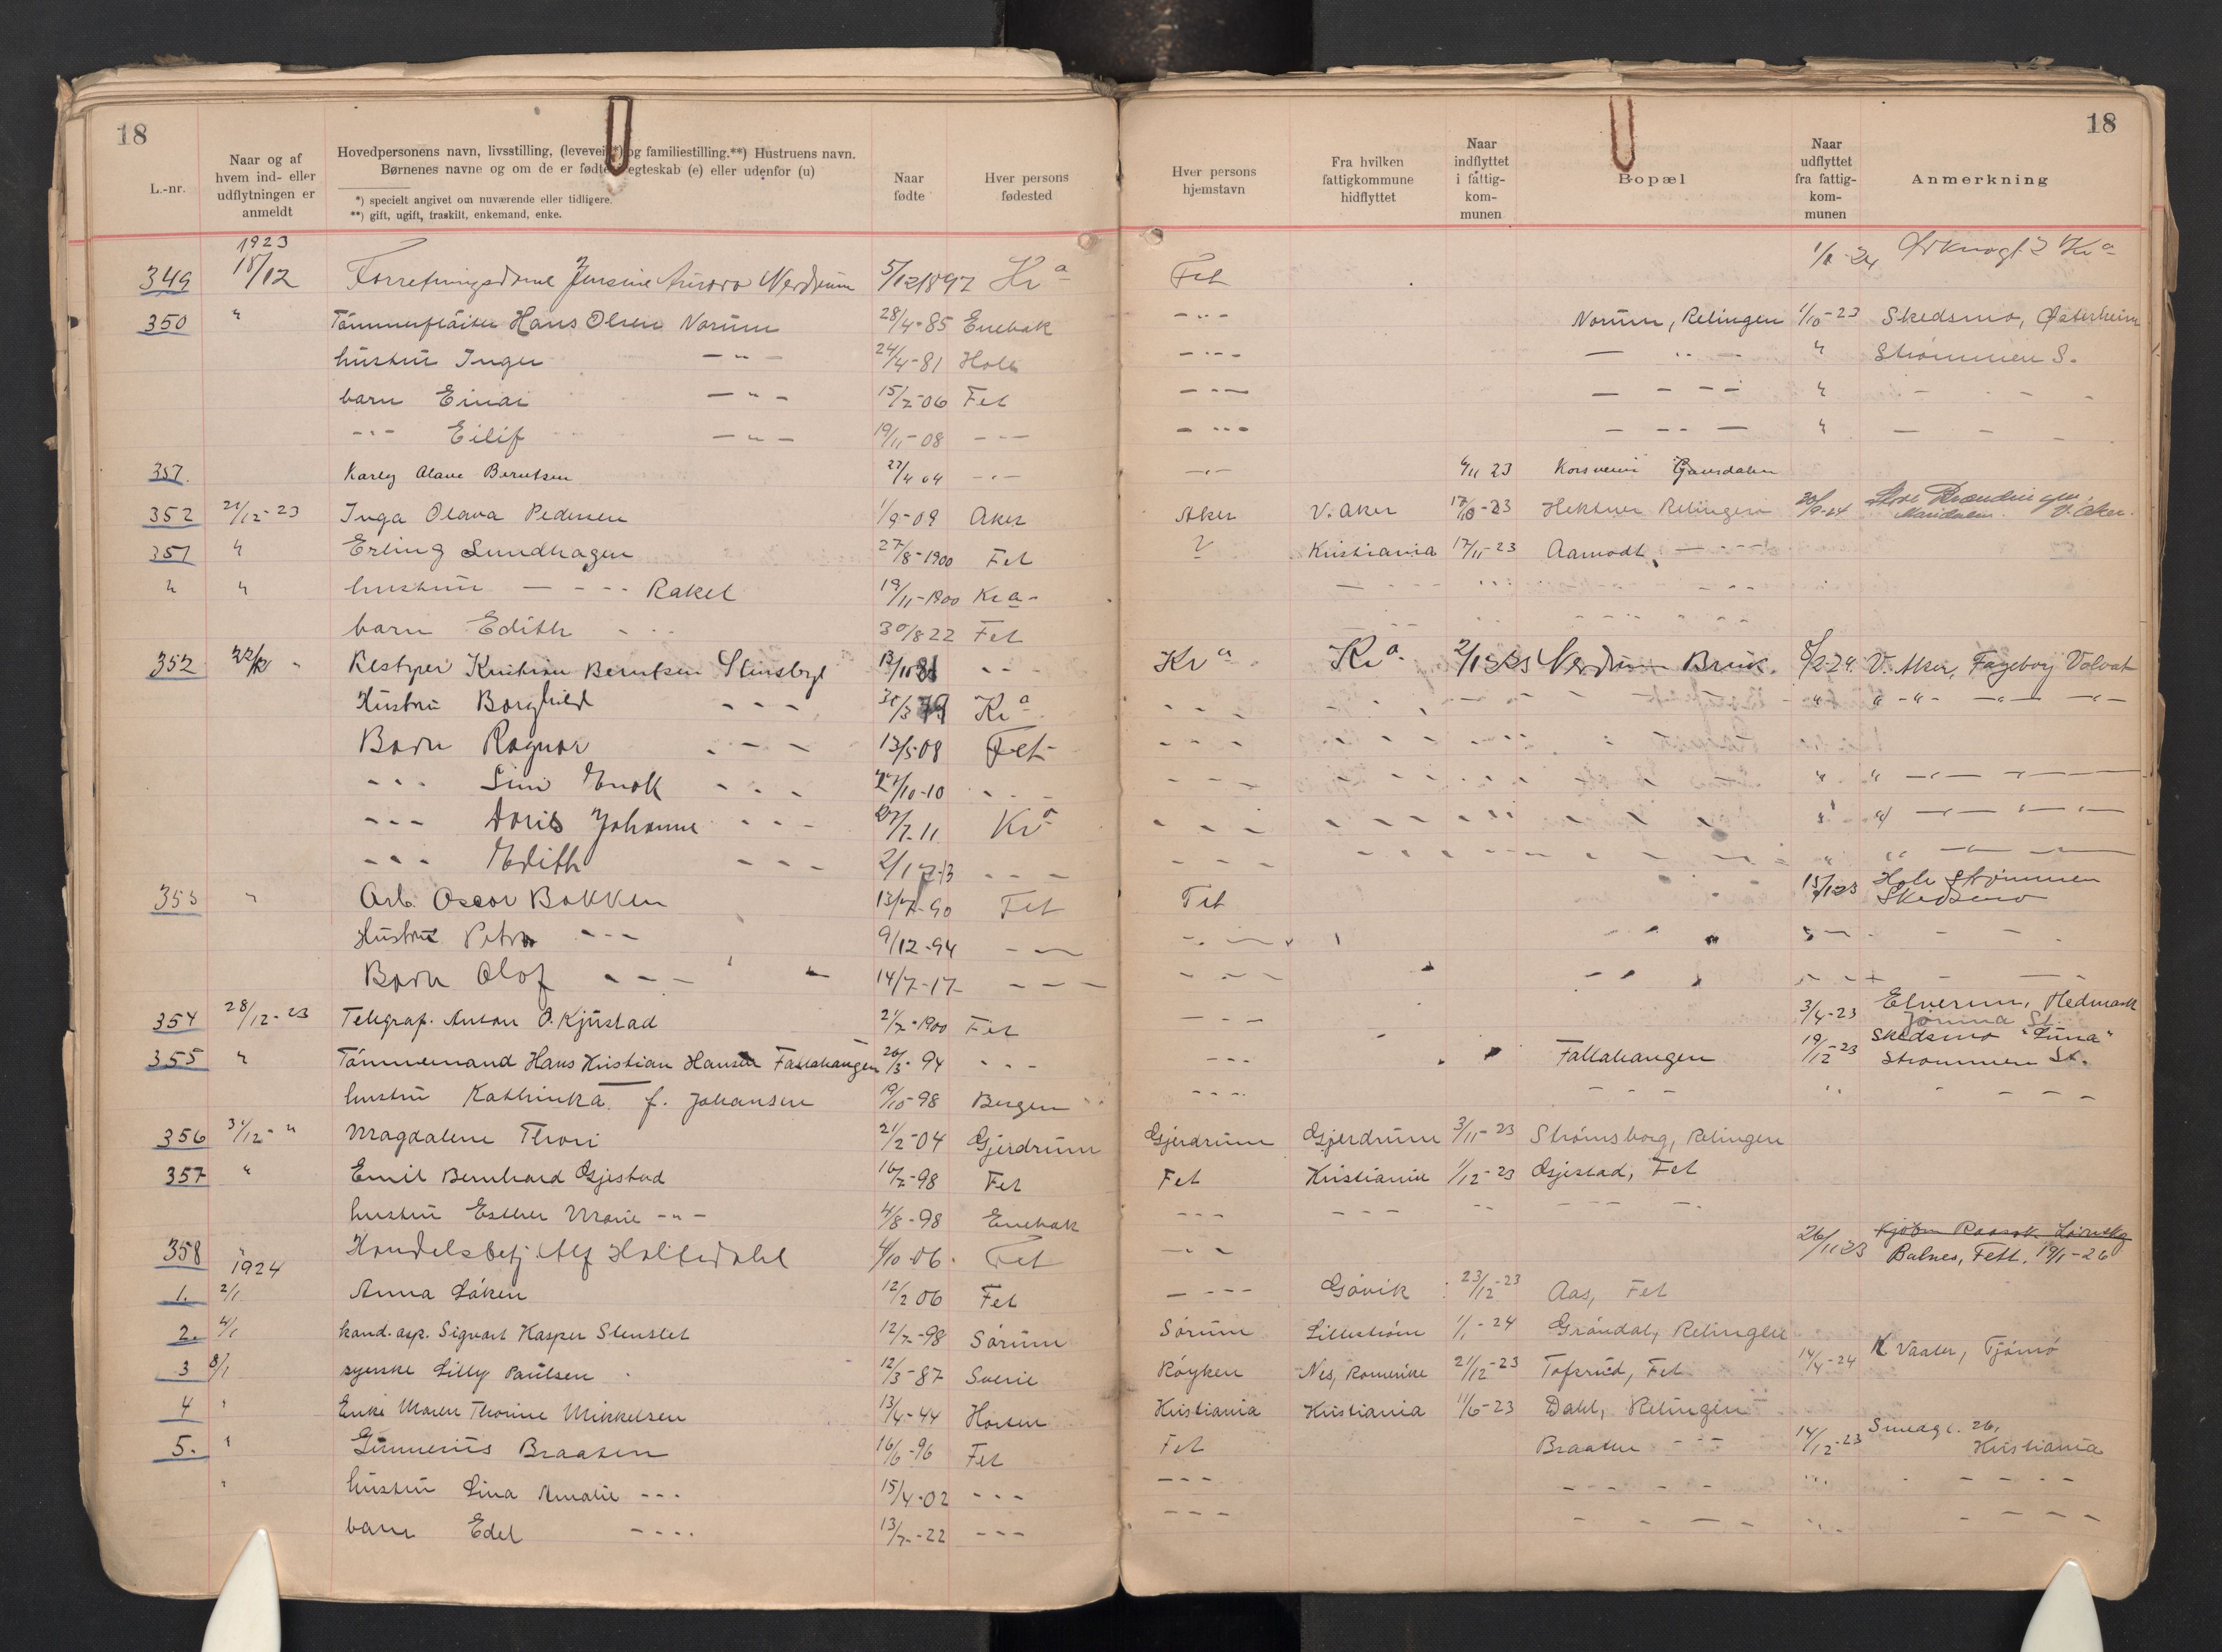 18
18
L.-nr.
Naar og af hvem ind- eller udflytningen er anmeldt
Hovedpersonens navn, livsstilling, (levevei*) og familiestilling.**) Hustruens navn.
Børnenes navne og om de er født i egteskab (e) eller udenfor (u)
*) specielt angivet om nuværende eller tidligere.
**) gift, ugift, fraskilt, enkemand, enke.
Naar fødte
Hver persons fødested
Hver persons hjemstavn
Fra hvilken fattigkommune hidflyttet
Naar indflyttet i fattig-kom-munen
Bopæl
Naar udflyttet fra fattig-kom-munen
Anmerkning
1923
349 18/12 Forretningsdame Jensine Aurora Nerdrum 5/12 1897 Kra Fet
350 " Hans Olsen Norum 28/4-85 Enebak - " - Norum, Relingen 1/10-23 Skedsmo, Østerheim
hustru Inger - " - 24/4-81 Hole - " - - " - " Strømmen S.
barn Einar - " - 15/2-06 Fet - " - - - - - "
- " - Eilif - " - 19/11-08 - - - - " - - - - - "
357. Karly Olave Berntsen 27/4 04 - " - - " - 6/11 23 Korsveien Gansdalen
352 21/12-23 Inga Olava Pedersen 1/9-09 Aker Aker V. Aker 17/10-23 Hektner Relingen Maridalen. V. Aker.
351 " Erling Sundhagen 27/8-1900 Fet ? Kristiania 17/11-23 Aamodt - - - -
" " hustru - - - - Rakel 19/11-1900 Kra -
barn Edith - - 30/8 22 Fet
352 22/12 " Kristian Berntsen Stensbyl Kra Kra Nerdrum Bruk 8/2-24 V. Aker, Fageborg Volvat
Hustru Borghild - - - 31/3 79 Kra
Barn Ragnar - - - 13/5-08 Fet
- - - Enok - - - 27/10-10
- - - Doris Johanne - - - 27/7-11 Kra
- - - Edith - - -
353 " Arb. Oscar Bakken 13/7-90 Fet Fet Hole Strømmen
Skedsmo
Hustru Petra - - - 9/12-94 - -
Barn Olof - - - 14/7-17 - - -
354 28/12-23 Telegraf. Anton O. Kjustad 21/7-1900 Fet - - - 3/4-23 Elverum, Hedmark
355 " Tømmermand Hans Kristian Hansen Fallahaugen 26/3-94 - - - - - - Fallahaugen 19/12-23 Skedsmo "Luna"
Strømmen St.
hustru Kathinka f. Johansen 19/10-98 Bergen - - - - - -
356 31/12-" Magdalene Thori 21/2-04 Gjerdrum Gjerdrum Gjerdrum 3/11-23 Strømsborg, Relingen
357 " Emil Bernhard Gjestad 16/7-98 Fet Fet Kristiania 1/12-23 Gjestad, Fet
hustru Esther Marie - " - 4/8-98 Enebak - - -
358 " Handelsbetj. Alf Holtedahl 4/10-06. Fet - - - 26/11 23 Balnes, Fett. 19/1-26
1924
1. 2/1 Anna Løken 12/2 06 Fet - - - - Gjøvik 23/12-23 Aas, Fet
2. 4/1 kand. asp. Sigvart Kasper Stenslet 12/7-98 Sørum Sørum Lillestrøm 1/1-24 Grøndal, Relingen
3 8/1 syerske Lilly Paulsen 12/3-87 Sverie Røyken Nes, Romerike 21/12-23 Tofsrud, Fet 14/4-24 K Vaaler, Tjømø
4 " Enke Maren Thorine Mikkelsen 13/4-44 Horten Kristiania Kristiania 11/6-23 Dahl, Relingen
5. " Gunnerius Braaten 16/6-96 Fet Fet Braaten - - - 14/12-23 Smedg. 26,
Kristiania
" hustru Lina Amalie - - - 15/4-02 - - - - - -
barn Edel - - - - 13/7-22 - - - - - -